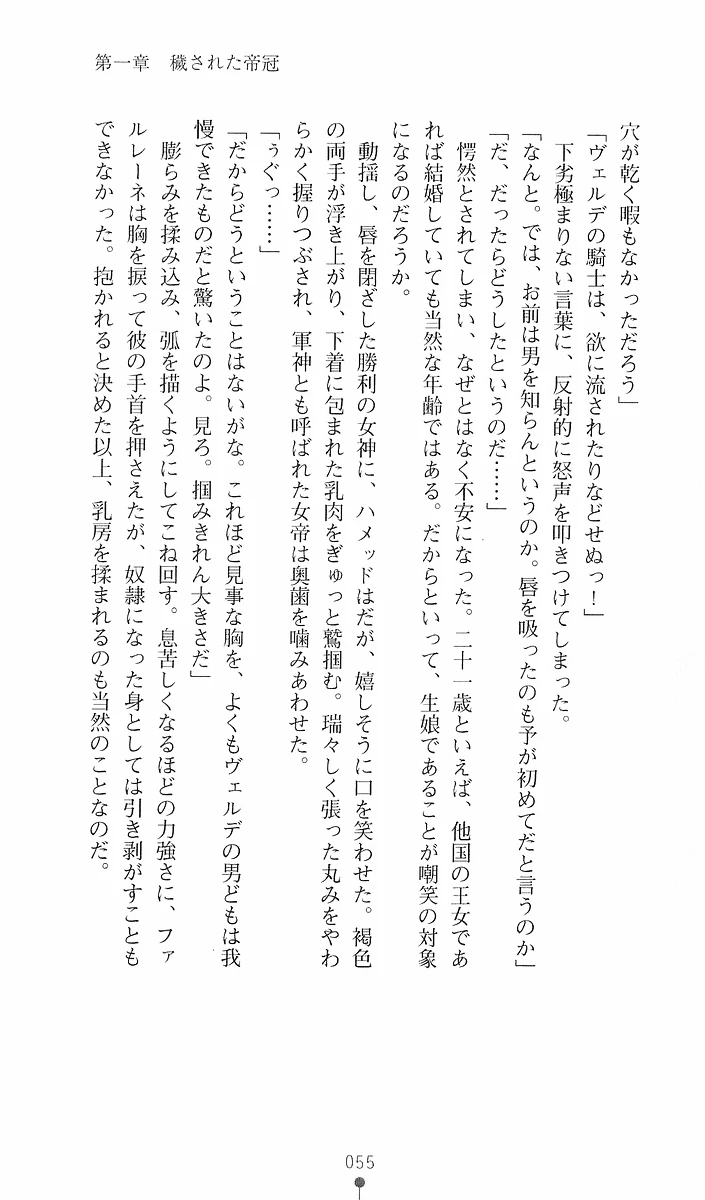 第一章　穢された帝冠
穴が乾く暇もなかっただろう」
「ヴェルデの騎士は、欲に流されたりなどせぬっ！」
　下劣極まりない言葉に、反射的に怒声を叩きつけてしまった。
「なんと。では、お前は男を知らんというのか。唇を吸ったのも予が初めてだと言うのか」
「だ、だったらどうしたというのだ……」
　愕然とされてしまい、なぜとはなく不安になった。二十一歳といえば、他国の王女であ
れば結婚していても当然な年齢ではある。だからといって、生娘であることが嘲笑の対象
になるのだろうか。
　動揺し、唇を閉ざした勝利の女神に、ハメッドはだが、嬉しそうに口を笑わせた。褐色
の両手が浮き上がり、下着に包まれた乳肉をぎゅっと鷲掴む。瑞々しく張った丸みをやわ
らかく握りつぶされ、軍神とも呼ばれた女帝は奥歯を噛みあわせた。
「ぅぐっ……」
「だからどうということはないがな。これほど見事な胸を、よくもヴェルデの男どもは我
慢できたものだと驚いたのよ。見ろ。掴みきれん大きさだ」
　膨らみを揉み込み、弧を描くようにしてこね回す。息苦しくなるほどの力強さに、ファ
ルレーネは胸を捩って彼の手首を押さえたが、奴隷になった身としては引き剥がすことも
できなかった。抱かれると決めた以上、乳房を揉まれるのも当然のことなのだ。
055